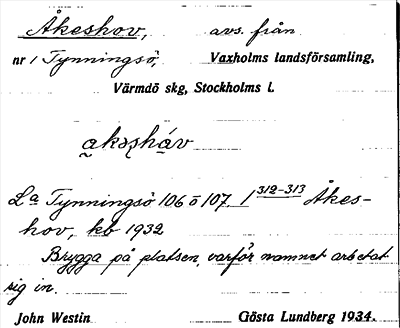 Åkeshov, avs. från
nr 1 Tynningsö, Vaxholms landsförsamling,
Värmdö skg, Stockholms l.
akəsháv
La Tynningsö 106 o 107, 1 312-313 Åkes-
hov, kb 1932
Brygga på platsen, varför namnet arbetat
sig in.
John Westin Gösta Lundberg 1934.